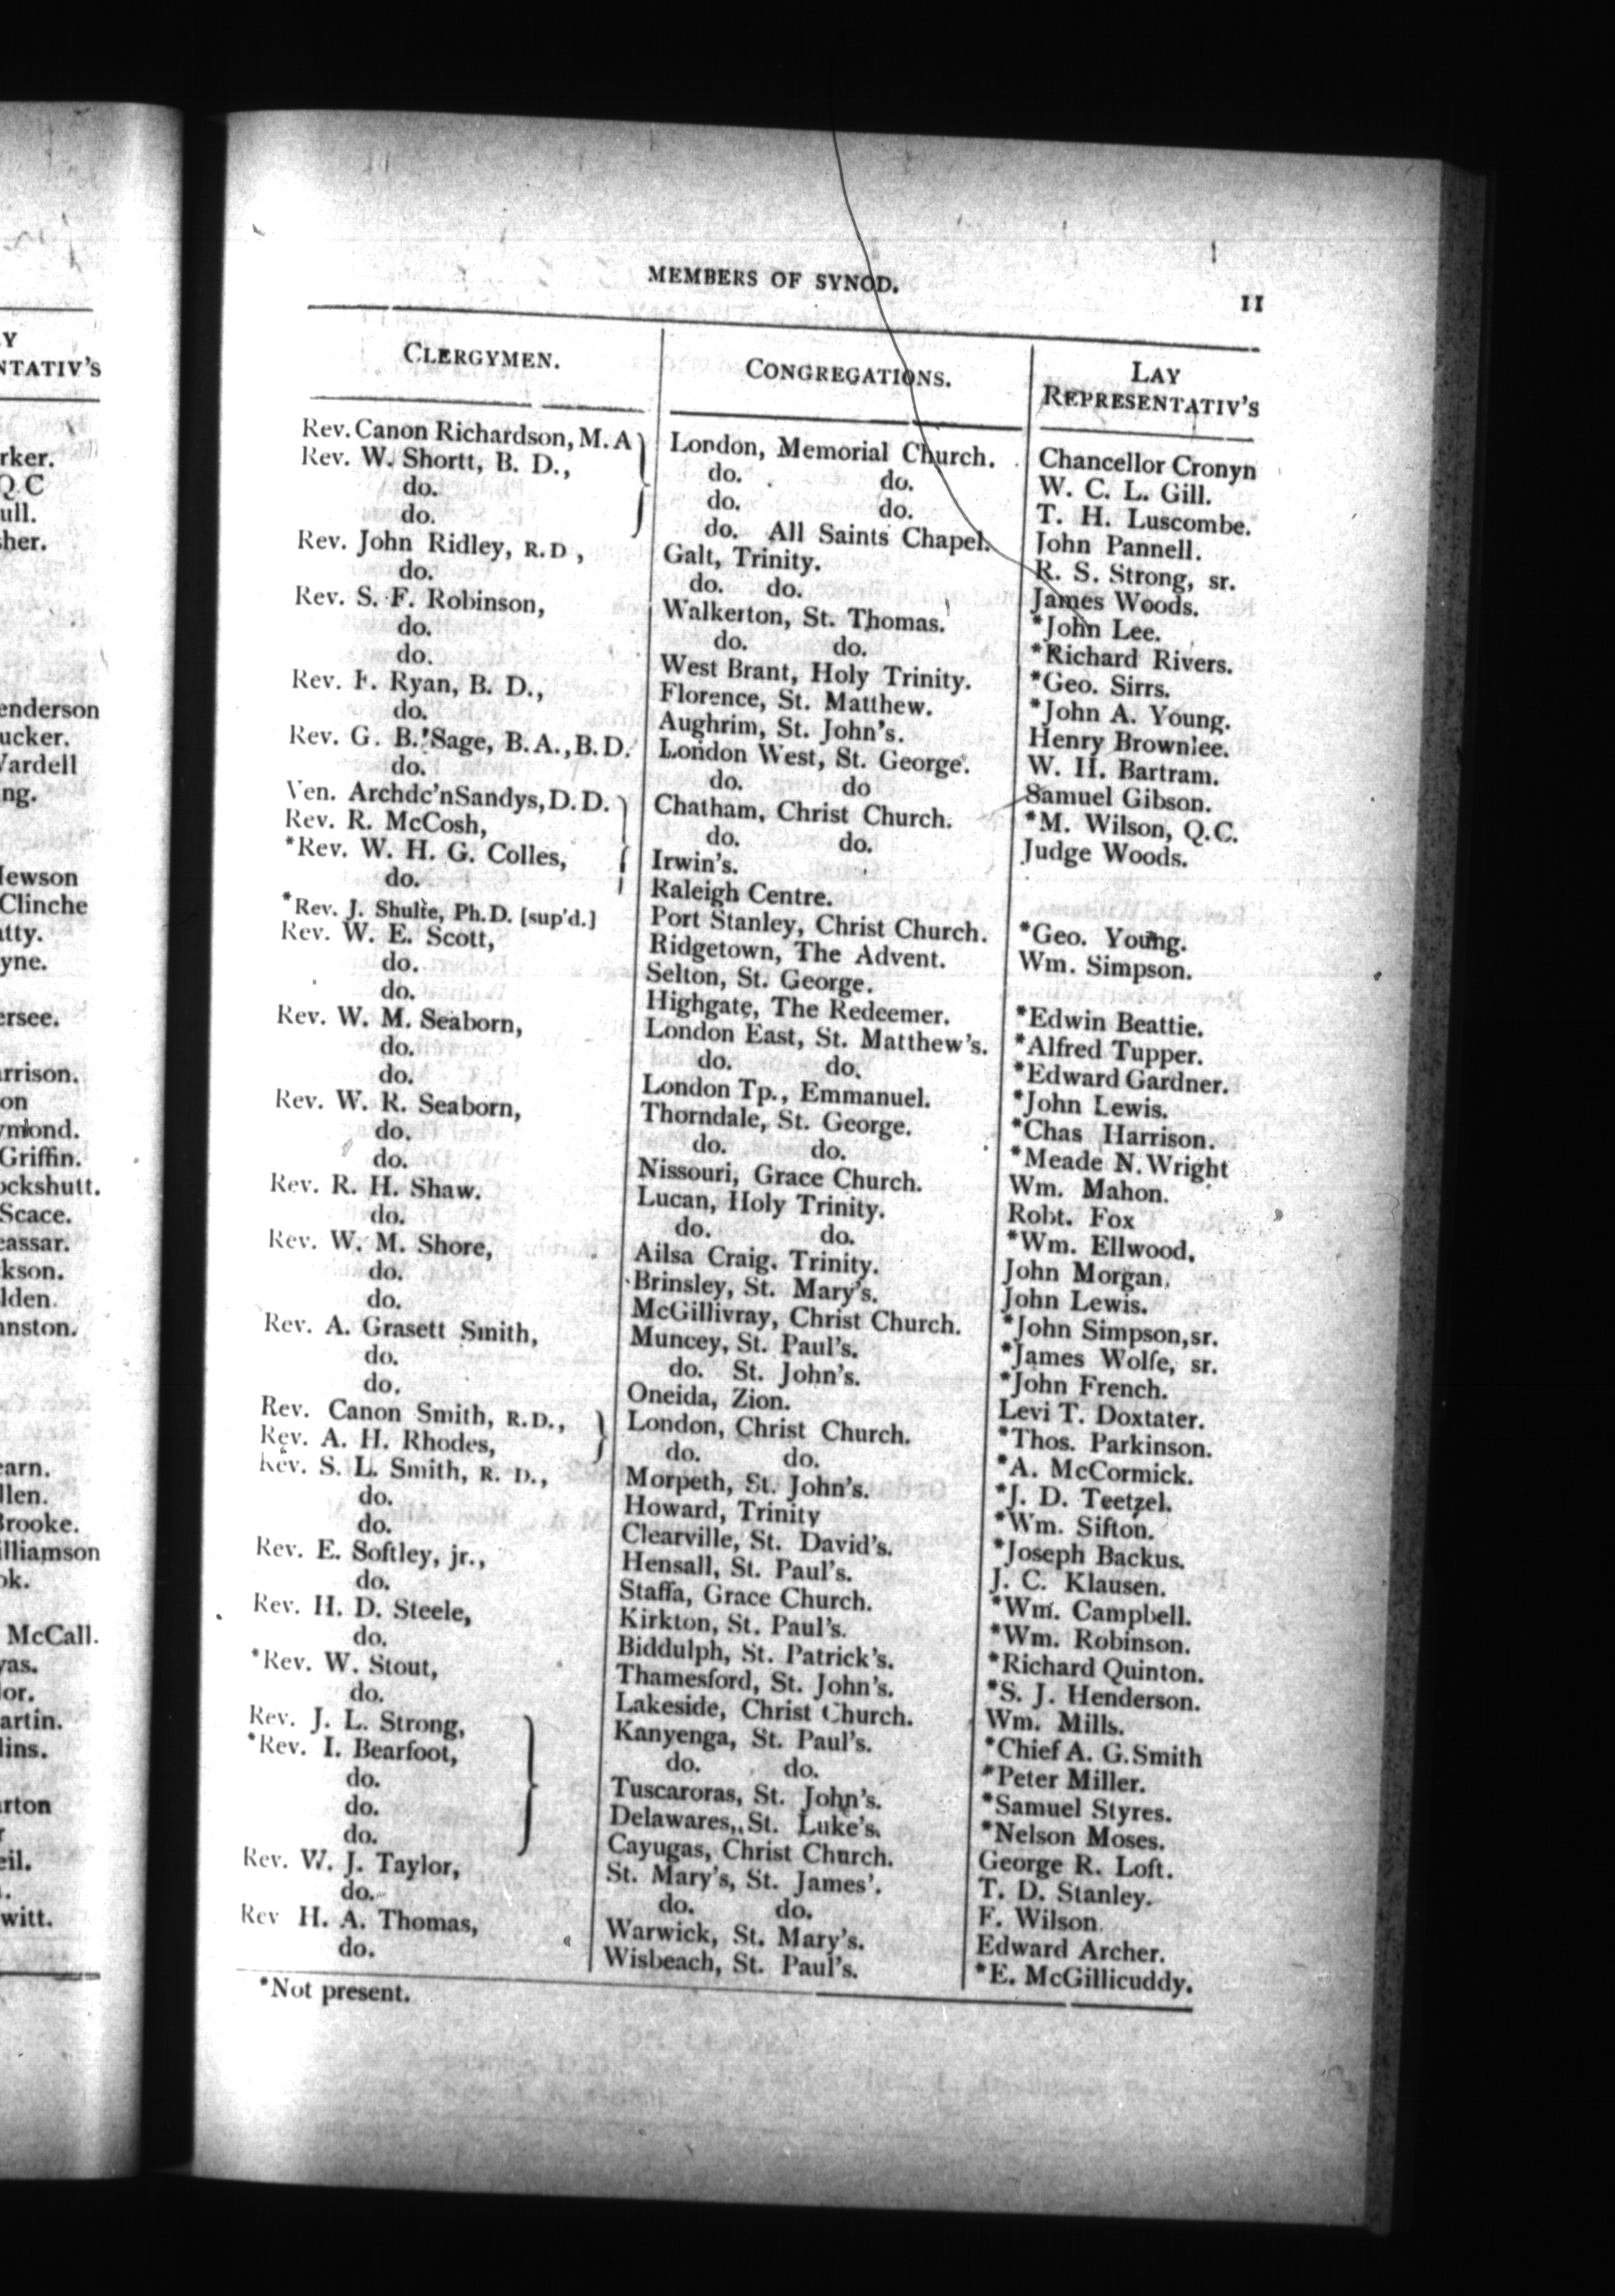 Y
NTATIV'S
rker.
Q.C
ull.
sher.
enderson
ucker.
Vardell
ng.
Newson
Clinche
atty.
yne.
ersee.
arrison.
on
ymond.
Griffin.
ockshutt.
Scace.
eassar.
kson.
lden.
hnston.
earn.
llen.
Brooke.
illiamson
ok.
McCall.
yas.
lor.
artin.
lins.
arton
r
eil.
witt.
MEMBERS OF SYNOD. 11
CLERGYMEN. CONGREGATIONS. LAY
REPRESENTATIV'S
Rev. Canon Richardson, M.A London, Memorial Church. Chancellor Cronyn
Rev. W. Shortt, B. D., do. do. W. C. L. Gill.
do. do. do. T. H. Luscombe.
do. do. All Saints Chapel. John Pannell.
Rev. John Ridley, R.D , Galt, Trinity. R. S. Strong, sr.
do. do. do. James Woods.
Rev. S. F. Robinson, Walkerton, St. Thomas. *John Lee.
do. do. do. *Richard Rivers.
do. West Brant, Holy Trinity. *Geo. Sirrs.
Rev. F. Ryan, B. D., Florence, St. Matthew. *John A. Young.
do. Aughrim, St. John's. Henry Brownlee.
Rev. G. B. Sage, B.A., B.D. London West, St. George. W. H. Bartram.
do. do. do Samuel Gibson.
Ven. Archdc'n Sandys, D.D. Chatham, Christ Church. *M. Wilson, Q.C.
Rev. R. McCosh, do. do. Judge Woods.
*Rev. W. H. G. Colles, Irwin's.
do. Raleigh Centre.
*Rev. J. Shulte, Ph.D. [sup'd.] Port Stanley, Christ Church. *Geo. Young.
Rev. W. E. Scott, Ridgetown, The Advent. Wm. Simpson.
do. Selton, St. George.
do. Highgate, The Redeemer. *Edwin Beattie.
Rev. W. M. Seaborn, London East, St. Matthew's. *Alfred Tupper.
do. do. do. *Edward Gardner.
do. London Tp., Emmanuel. *John Lewis.
Rev. W. R. Seaborn, Thorndale, St. George. *Chas Harrison.
do. do. do. *Meade N. Wright
do. Nissouri, Grace Church. Wm. Mahon.
Rev. R. H. Shaw. Lucan, Holy Trinity. Robt. Fox
do. do. do. *Wm. Ellwood.
Rev. W. M. Shore, Ailsa Craig. Trinity. John Morgan.
do. Brinsley, St. Mary's. John Lewis.
do. McGillivray, Christ Church. *John Simpson, sr.
Rev. A. Grasett Smith, Muncey, St. Paul's. *James Wolfe, sr.
do. do. St. John's. *John French.
do. Oneida, Zion. Levi T. Doxtater.
Rev. Canon Smith, R.D., London, Christ Church. *Thos. Parkinson.
Rev. A. H. Rhodes, do. do. *A. McCormick.
Rev. S. L. Smith, R. D., Morpeth, St. John's. *J. D. Teetzel.
do. Howard, Trinity *Wm. Sifton.
do. Clearville, St. David's. *Joseph Backus.
Rev. E. Softley, jr., Hensall, St. Paul's. J. C. Klausen.
do. Staffa, Grace Church. *Wm. Campbell.
Rev. H. D. Steele, Kirkton, St. Paul's. *Wm. Robinson.
do. Biddulph, St. Patrick's. *Richard Quinton.
*Rev. W. Stout, Thamesford, St. John's. *S. J. Henderson.
do. Lakeside, Christ Church. Wm. Mills.
Rev. J. L. Strong, Kanyenga, St. Paul's. *Chief A. G. Smith
*Rev. I. Bearfoot, do. do. *Peter Miller.
do. Tuscaroras, St. John's. *Samuel Styres.
do. Delawares, St. Luke's. *Nelson Moses.
do. Cayugas, Christ Church. George R. Loft.
Rev. W. J. Taylor, St. Mary's, St. James'. T. D. Stanley.
do. do. do. F. Wilson.
Rev H. A. Thomas, Warwick, St. Mary's. Edward Archer.
do. Wisbeach, St. Paul's. *E. McGillicuddy.
*Not present.